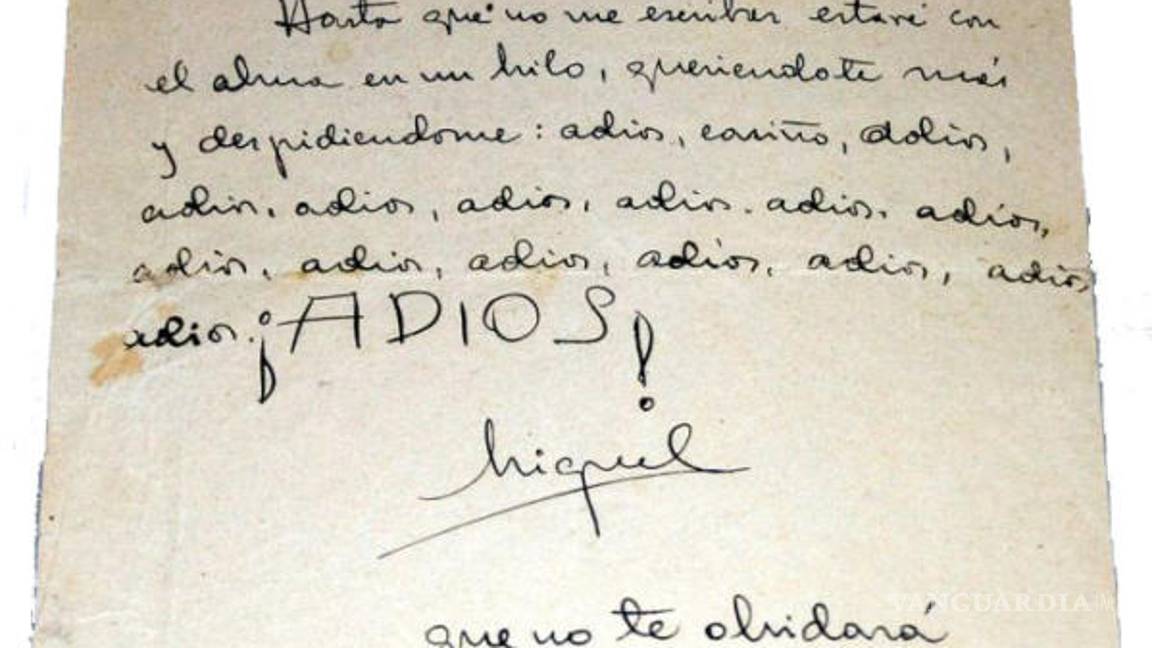 Hasta que no me escribas estaré con
el alma en un hilo, queriendote más
y despidiendome: adios, cariño, adios,
adios, adios, adios, adios. adios. adios,
adios, adios, adios, adios, adios, adios
adios. ¡ADIOS!
Miguel
que no te olvidará
VANGUARDIA